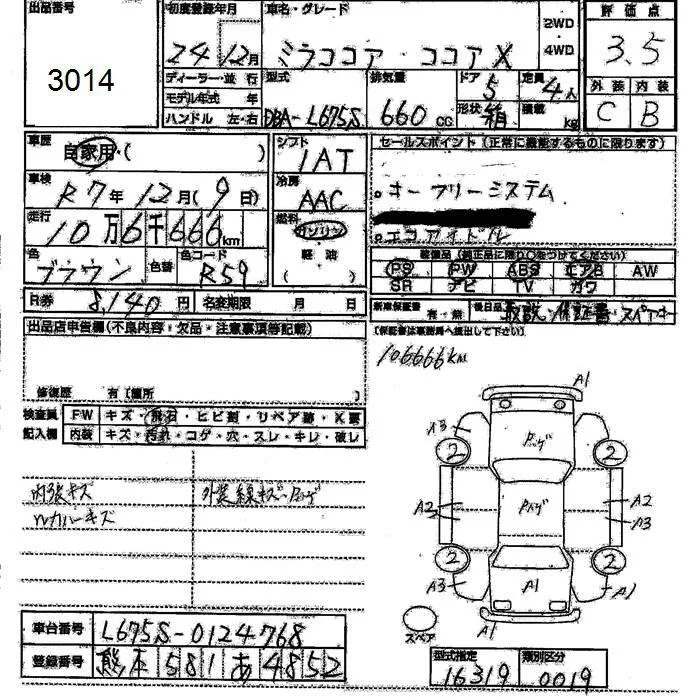 出品番号
3014
初度登録年月
24年12月
車名・グレード
ミラココア・ココアX
2WD
4WD
評価点
3.5
外装 内装
C B
ディーラー・並行
モデル年式 年
ハンドル 左・右
型式
DBA-L675S
排気量
660 CC
ドア
5
形状
箱
定員
4人
積載
kg
車歴
自家用・( )
車検
R7年12月(9日)
走行
10万6千666km
色
ブラウン
色替
色コード
R59
シフト
IAT
冷房
AAC
燃料
ガソリン
軽油
( )
セールスポイント(正常に機能するものに限ります)
。キーフリーシステム
。エコアイドル
装備品(純正品に限り○をつけてください)
PS PW ABS エアB AW
SR ナビ TV カワ
R券 8,140円 名変期限 月 日
新車保証書 有・無
後日品 取説・保証書・スペアキー
(保証書は事務局へ提出して下さい)
出品店申告欄(不良内容・欠品・注意事項等記載)
修復歴 有(箇所 )
106666km
検査員記入欄
FW キズ・飛石・ヒビ割・リペア跡・X要
内装 キズ・汚れ・コゲ・穴・スレ・キレ・破レ
内張キズ
外装線キズ・ハゲ
カバーキズ
A1
A3
2 2
A2 A2
A2 A3
2 2
A3 A1 A1
A1
スペア
車台番号 L675S-0124768
登録番号 熊本581あ4852
型式指定 類別区分
16319 0019